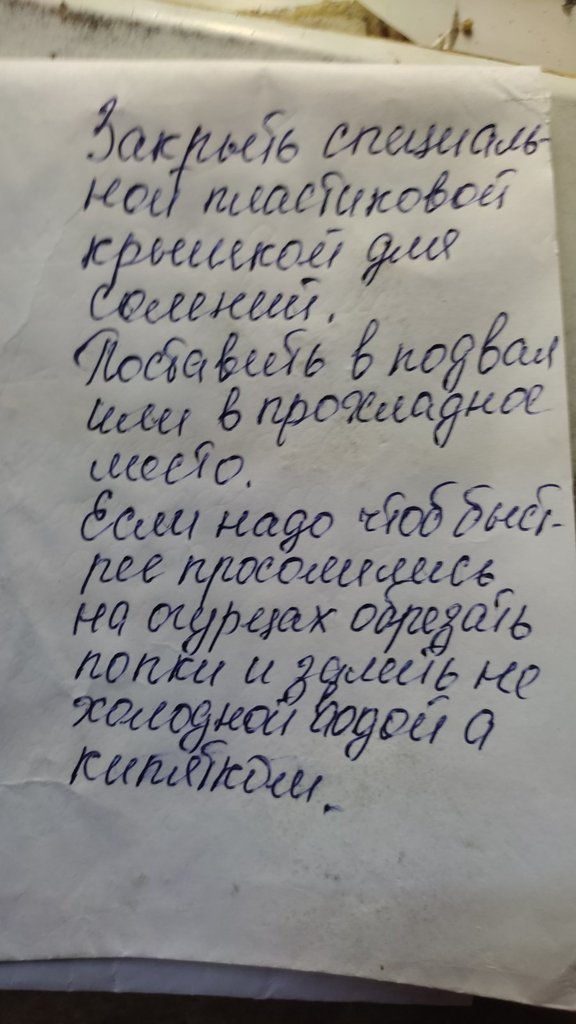 Закрыть специаль-
ной пластиковой
крышкой для
солений.
Поставить в подвал
или в прохладное
место.
Если надо чтоб быст-
рее просолились
на огурцах обрезать
попки и залить не
холодной водой а
кипятком.